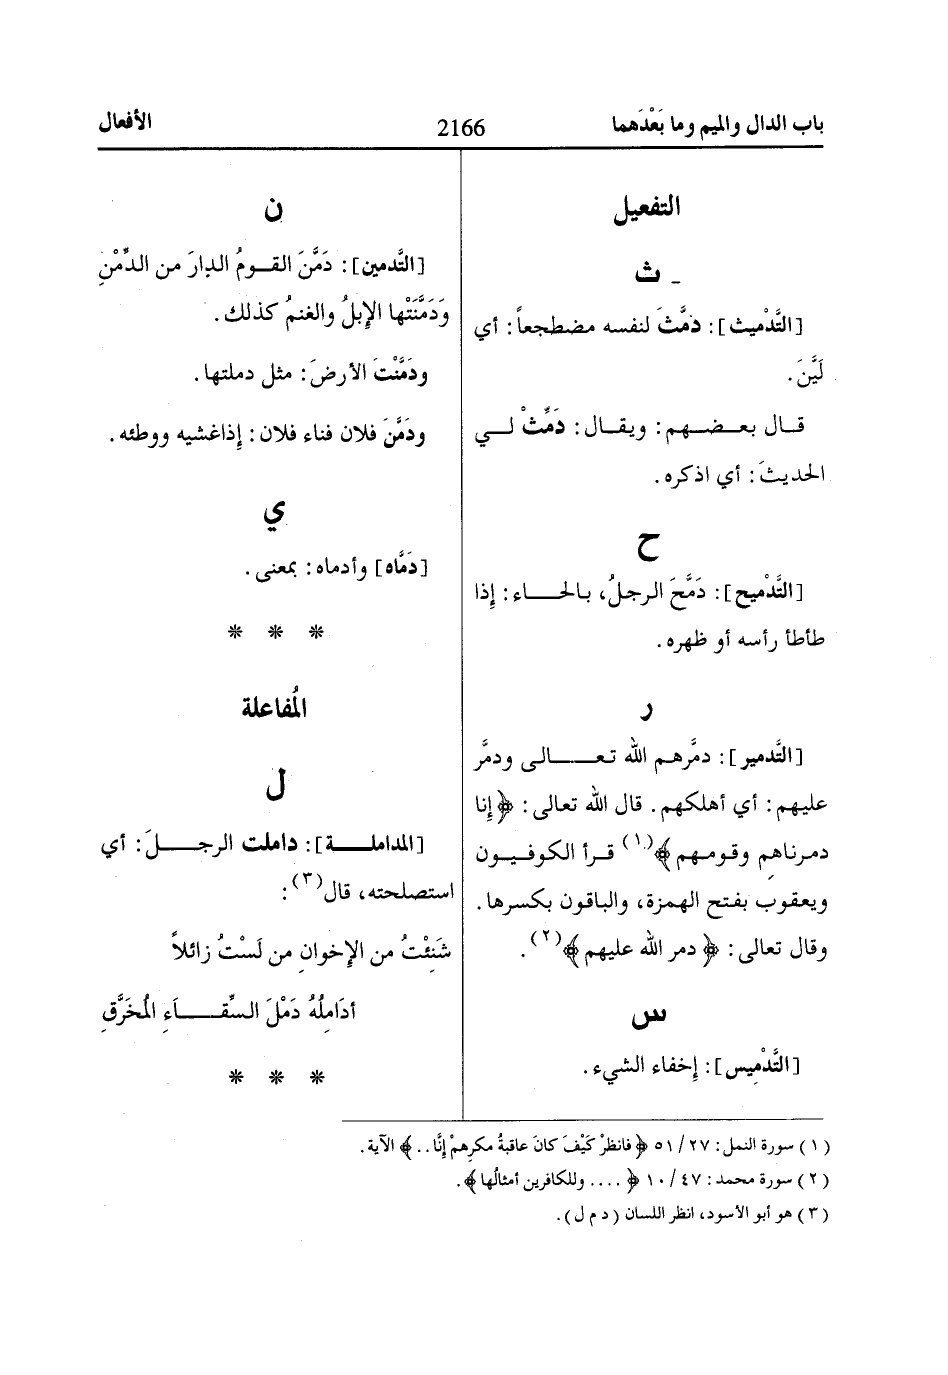 باب الدال والميم وما بَعْدَهما
2166
الأفعال
التفعيل
ـ ث
[التَّدْميث]: دمَّثَ لنفسه مضطجعاً: أي
لَيَّنَ.
قال بعضهم: ويقال: دَمِّثْ لي
الحديثَ: أي اذكره.
ح
[التَّدْميح]: دَمَّحَ الرجلُ، بالحاء: إذا
طأطأ رأسه أو ظهره.
ر
[التَّدمير]: دمَّرهم الله تعالى ودمَّر
عليهم: أي أهلكهم. قال الله تعالى: ﴿إنا
دمرناهم وقومهم﴾(١) قرأ الكوفيون
ويعقوب بفتح الهمزة، والباقون بكسرها.
وقال تعالى: ﴿دمر الله عليهم﴾(٢).
س
[التَّدْمِيس]: إخفاء الشيء.
ن
[التَّدمين]: دَمَّنَ القومُ الدارَ من الدِّمْنِ
وَدَمَّنَتْها الإبلُ والغنمُ كذلك.
ودَمَّنْت الأرضَ: مثل دملتها.
ودَمَّنَ فلان فناء فلان: إذاغشيه ووطئه.
ي
[دَمَّاه] وأدماه: بمعنى.
* * *
المُفاعلة
ل
[المداملة]: داملت الرجلَ: أي
استصلحته، قال(٣):
شَنِئْتُ من الإخوانِ من لَسْتُ زائلاً
أدَامِلُهُ دَمْلَ السِّقَاءِ المُخَرَّقِ
* * *
(١) سورة النمل: ٢٧/ ٥١ ﴿فانظرْ كَيْفَ كانَ عاقبةُ مكرِهمْ إنَّا..﴾ الآية.
(٢) سورة محمد: ٤٧/ ١٠ ﴿.... وللكافرين أمثالُها﴾.
(٣) هو أبو الأسود، انظر اللسان (د م ل).